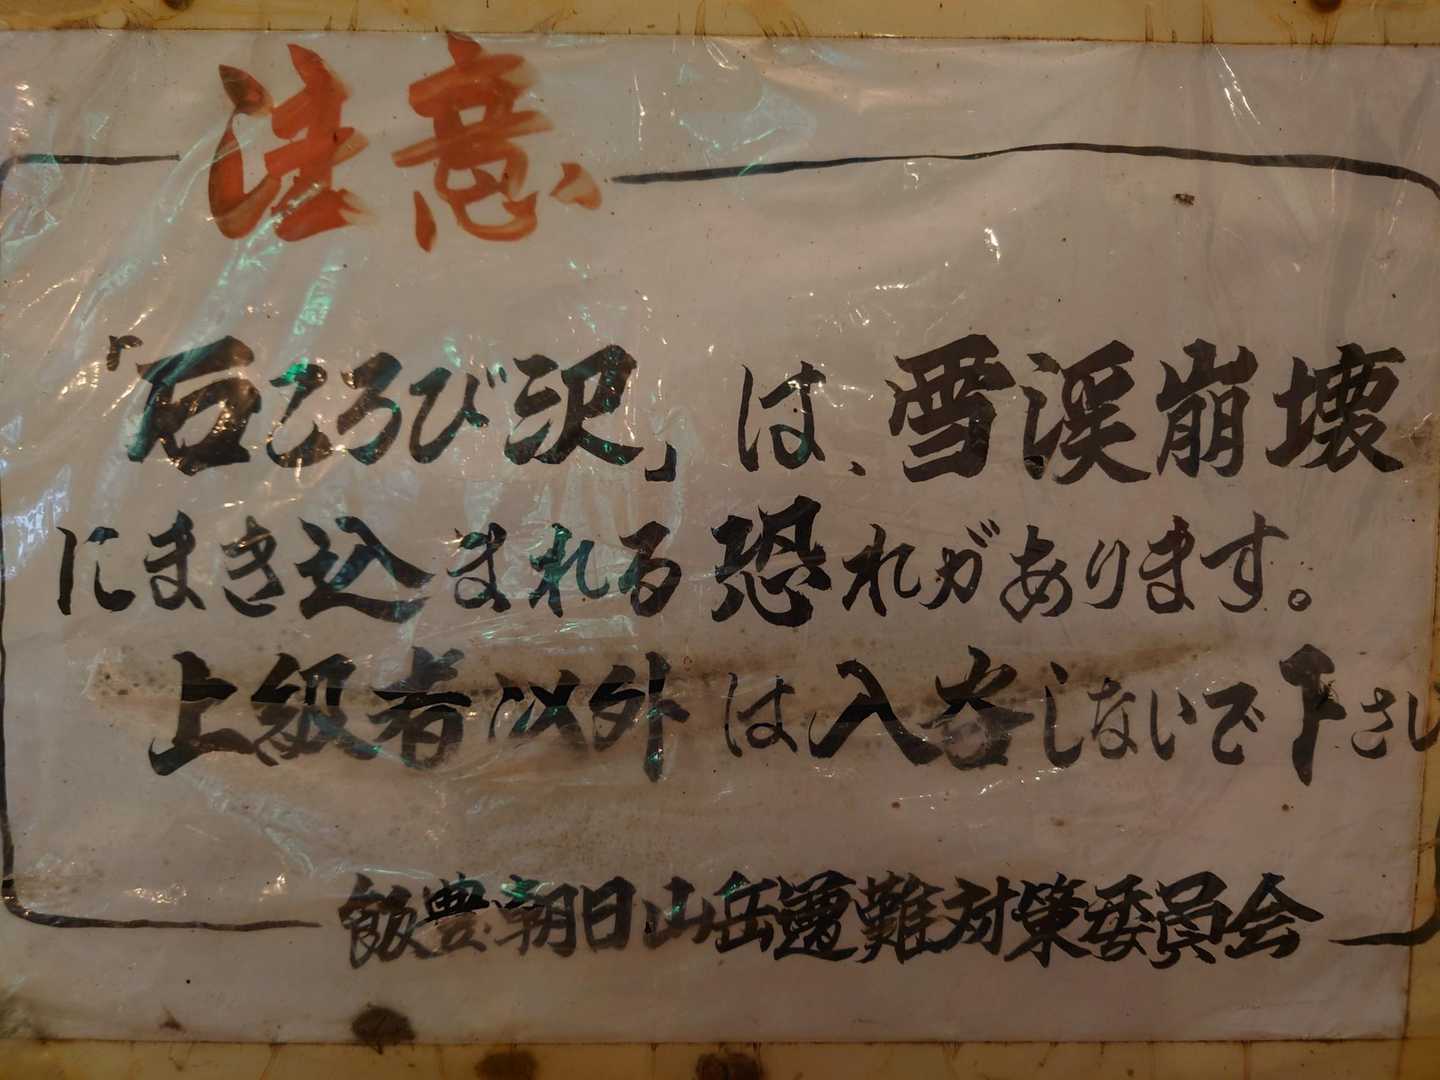 注意
「石ころび沢」は、雪渓崩壊
にまき込まれる恐れがあります。
上級者以外は入谷しないで下さい
飯豊朝日山岳遭難対策委員会